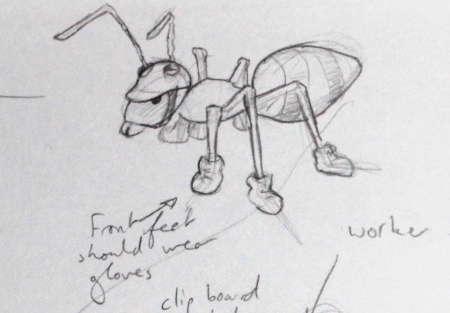 Front feet
should wear
gloves
worker
clip board